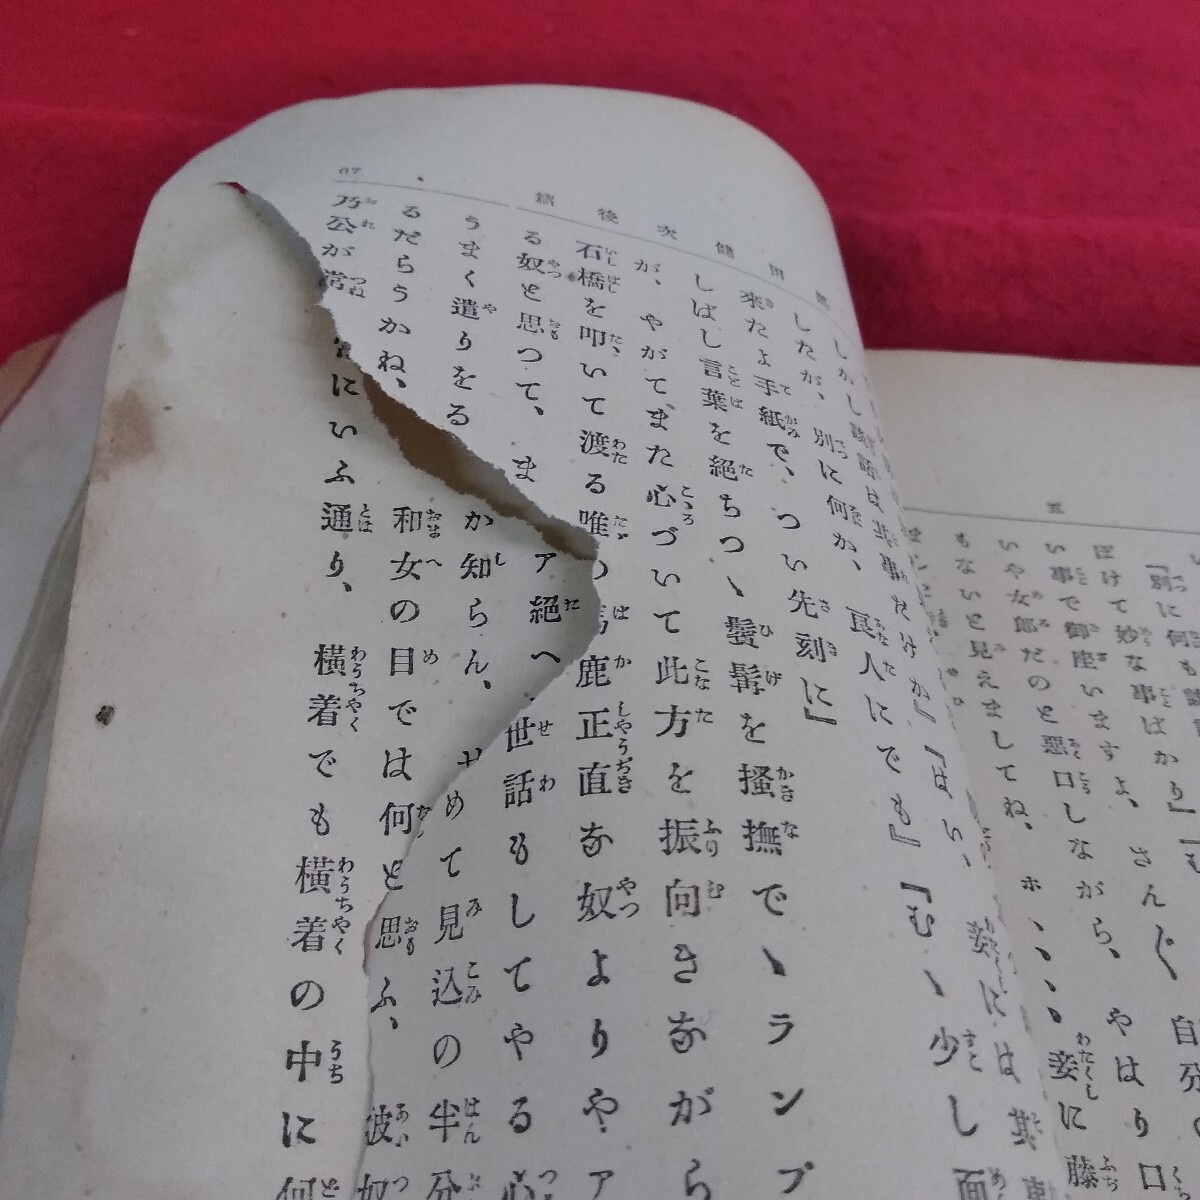 五
『別に何も
ぼけて妙な事ばかり』『む
い事で御座いますよ、さん〴〵自分
いや女郎だのと悪口しながら、やはり口
もないと見えましてね、ホヽヽヽ、妾に藤
67
續後次健田
妾には其
しかし
は其事だけか』『はい、
したが、別に何か、良人にでも』『むヽ少し面
來たよ手紙で、つい先刻に』
しばし言葉を絶ちつヽ鬚髯を搔撫でヽランプ
が、やがてまた心づいて此方を振向きながら
石橋を叩いて渡る唯の馬鹿正直な奴よりやア
る奴と思つて、まア絶へ
世話もしてやる心
うまく遣りをるか知らん、せめて見込の半分
るだらうかね、和女の目では何と思ふ、彼奴
乃公が常
にいふ通り、横着でも横着の中に何